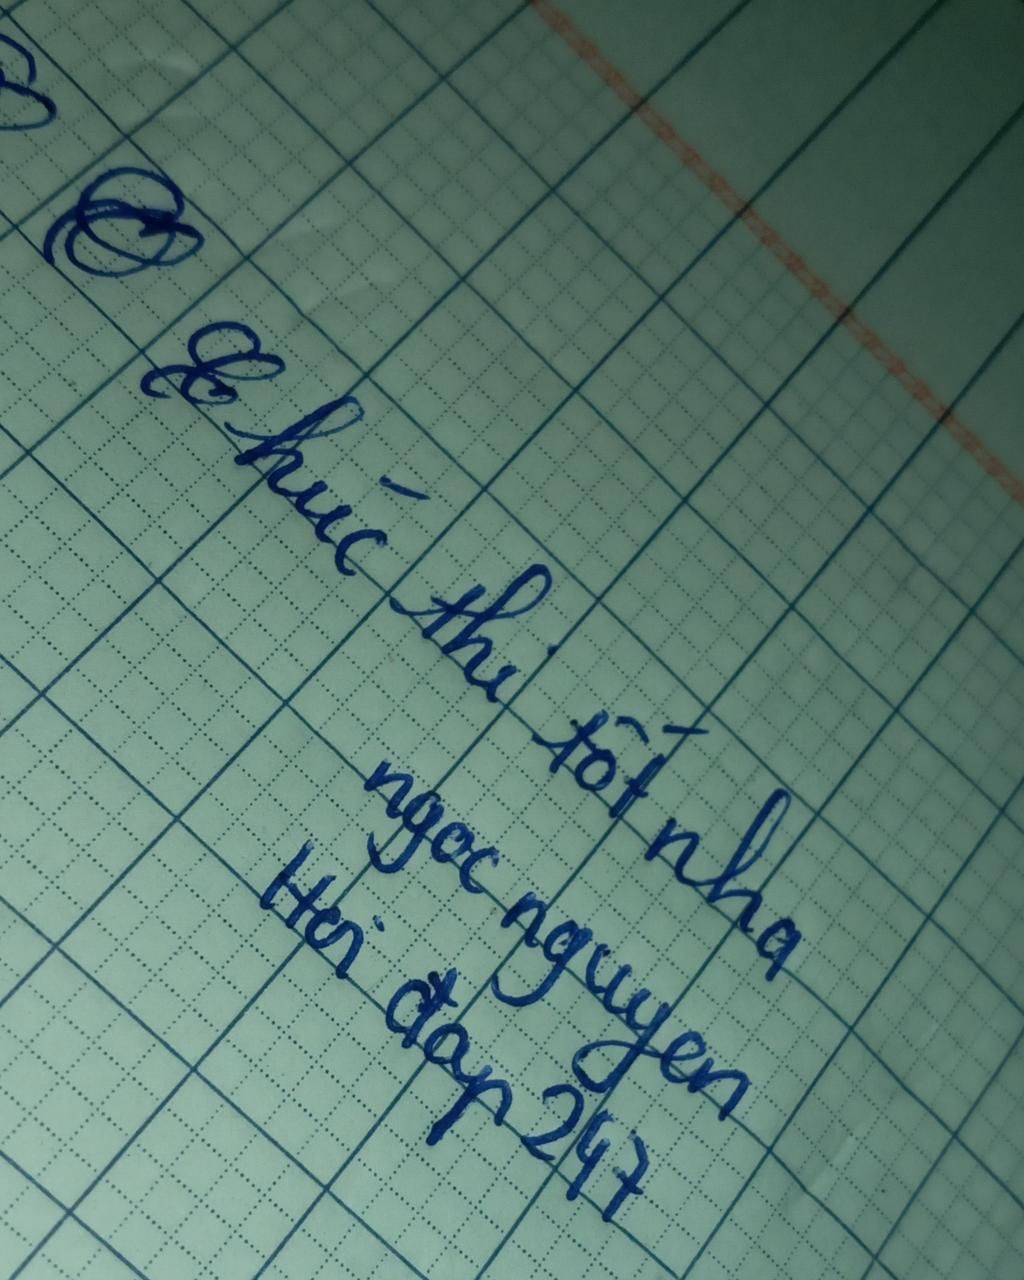 Chúc thi tốt nha
ngoc nguyen
Hoi đap 247